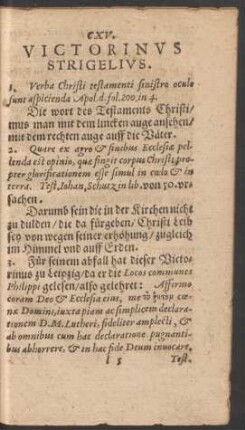 CXV.
VICTORINVS
STRIGELIVS.
1. Verba Christi testamenti sinistro oculo
sunt aspicienda Apol. d. fol. 200. in 4.
Die wort des Testaments Christi/
mus man mit dem lincken auge ansehen/
mit dem rechten auge auff die Väter.
2. Quare ex agro & finibus Ecclesiæ pel-
lenda est opinio, quæ fingit corpus Christi, pro-
pter glorificationem esse simul in cœlo & in
terra. Test. Johan. Schutz in lib. von 50. vr-
sachen.
Darumb sein die in der Kirchen nicht
zu dulden/ die da fürgeben/ Christi Leib
sey von wegen seiner erhöhung/ zugleich
im Himmel vnd auff Erden.
3. Für seinem abfall hat dieser Victo-
rinus zu Leipzig/ da er die Locos communes
Philippi gelesen/ also gelehret: Affirmo
coram Deo & Ecclesia eius, me τὸ ῥητὸν cœ-
næ Domini, iuxta piam ac simplicem declara-
tionem D. M. Lutheri, fideliter amplecti, &
ab omnibus cum hac declaratione pugnanti-
bus abhorrere, & in hac fide Deum inuocare.
Test.